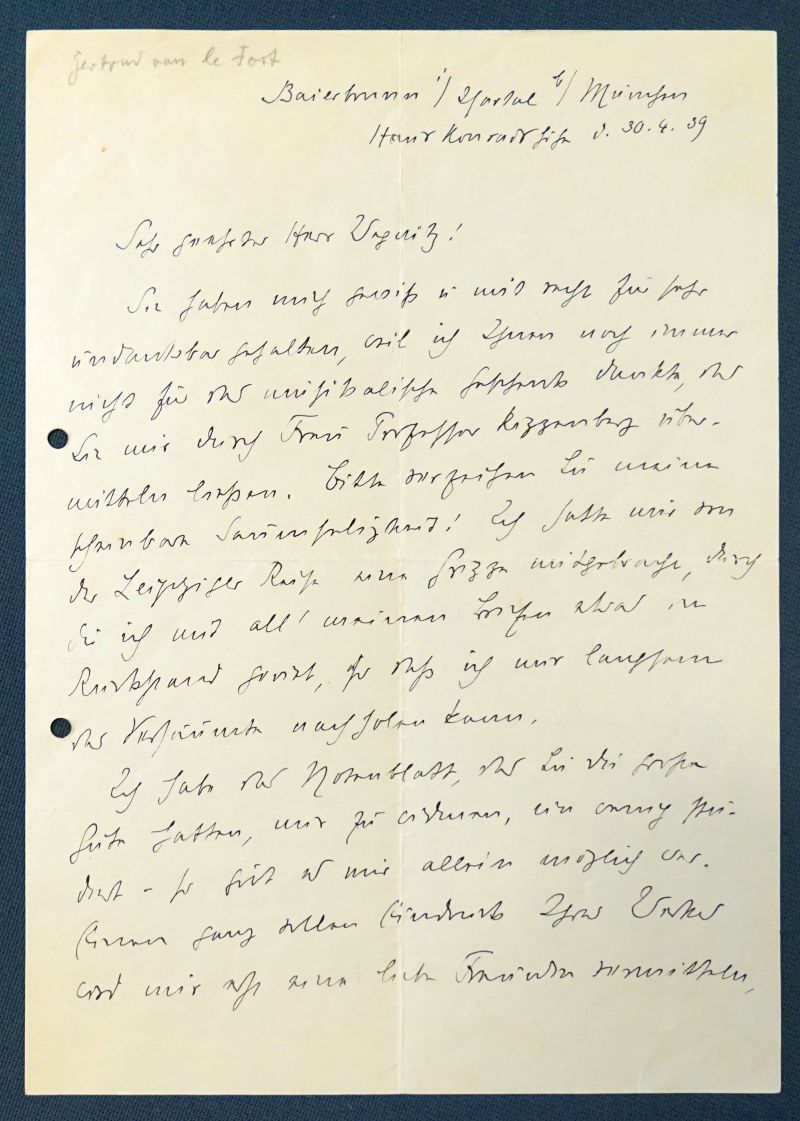 Gertrud von le Fort
Baierbrunn i/ Isartal b/ München
Haus Konradshöhe d. 30.4.39
Sehr geehrter Herr Wagnitz!
Sie haben mich gewiß u mit recht für sehr
undankbar gehalten, weil ich Ihnen noch immer
nicht für das musikalische Geschenk dankte, das
Sie mir durch Frau Professor über-
mitteln ließen. Bitte verzeihen Sie meine
scheinbare Saumseligkeit! Ich hatte mir von
der Leipziger Reise eine Grippe mitgebracht, durch
die ich mit all' meinen Briefen etwas in
Rückstand geriet, so daß ich nur langsam
das Versäumte nachholen kann.
Ich habe das Notenblatt, das Sie die große
Güte hatten, mir zu widmen, ein wenig stu-
diert – so gut es mir allein möglich war.
Einen ganz vollen Eindruck Ihres Werkes
wird mir erst eine liebe Freundin vermitteln,